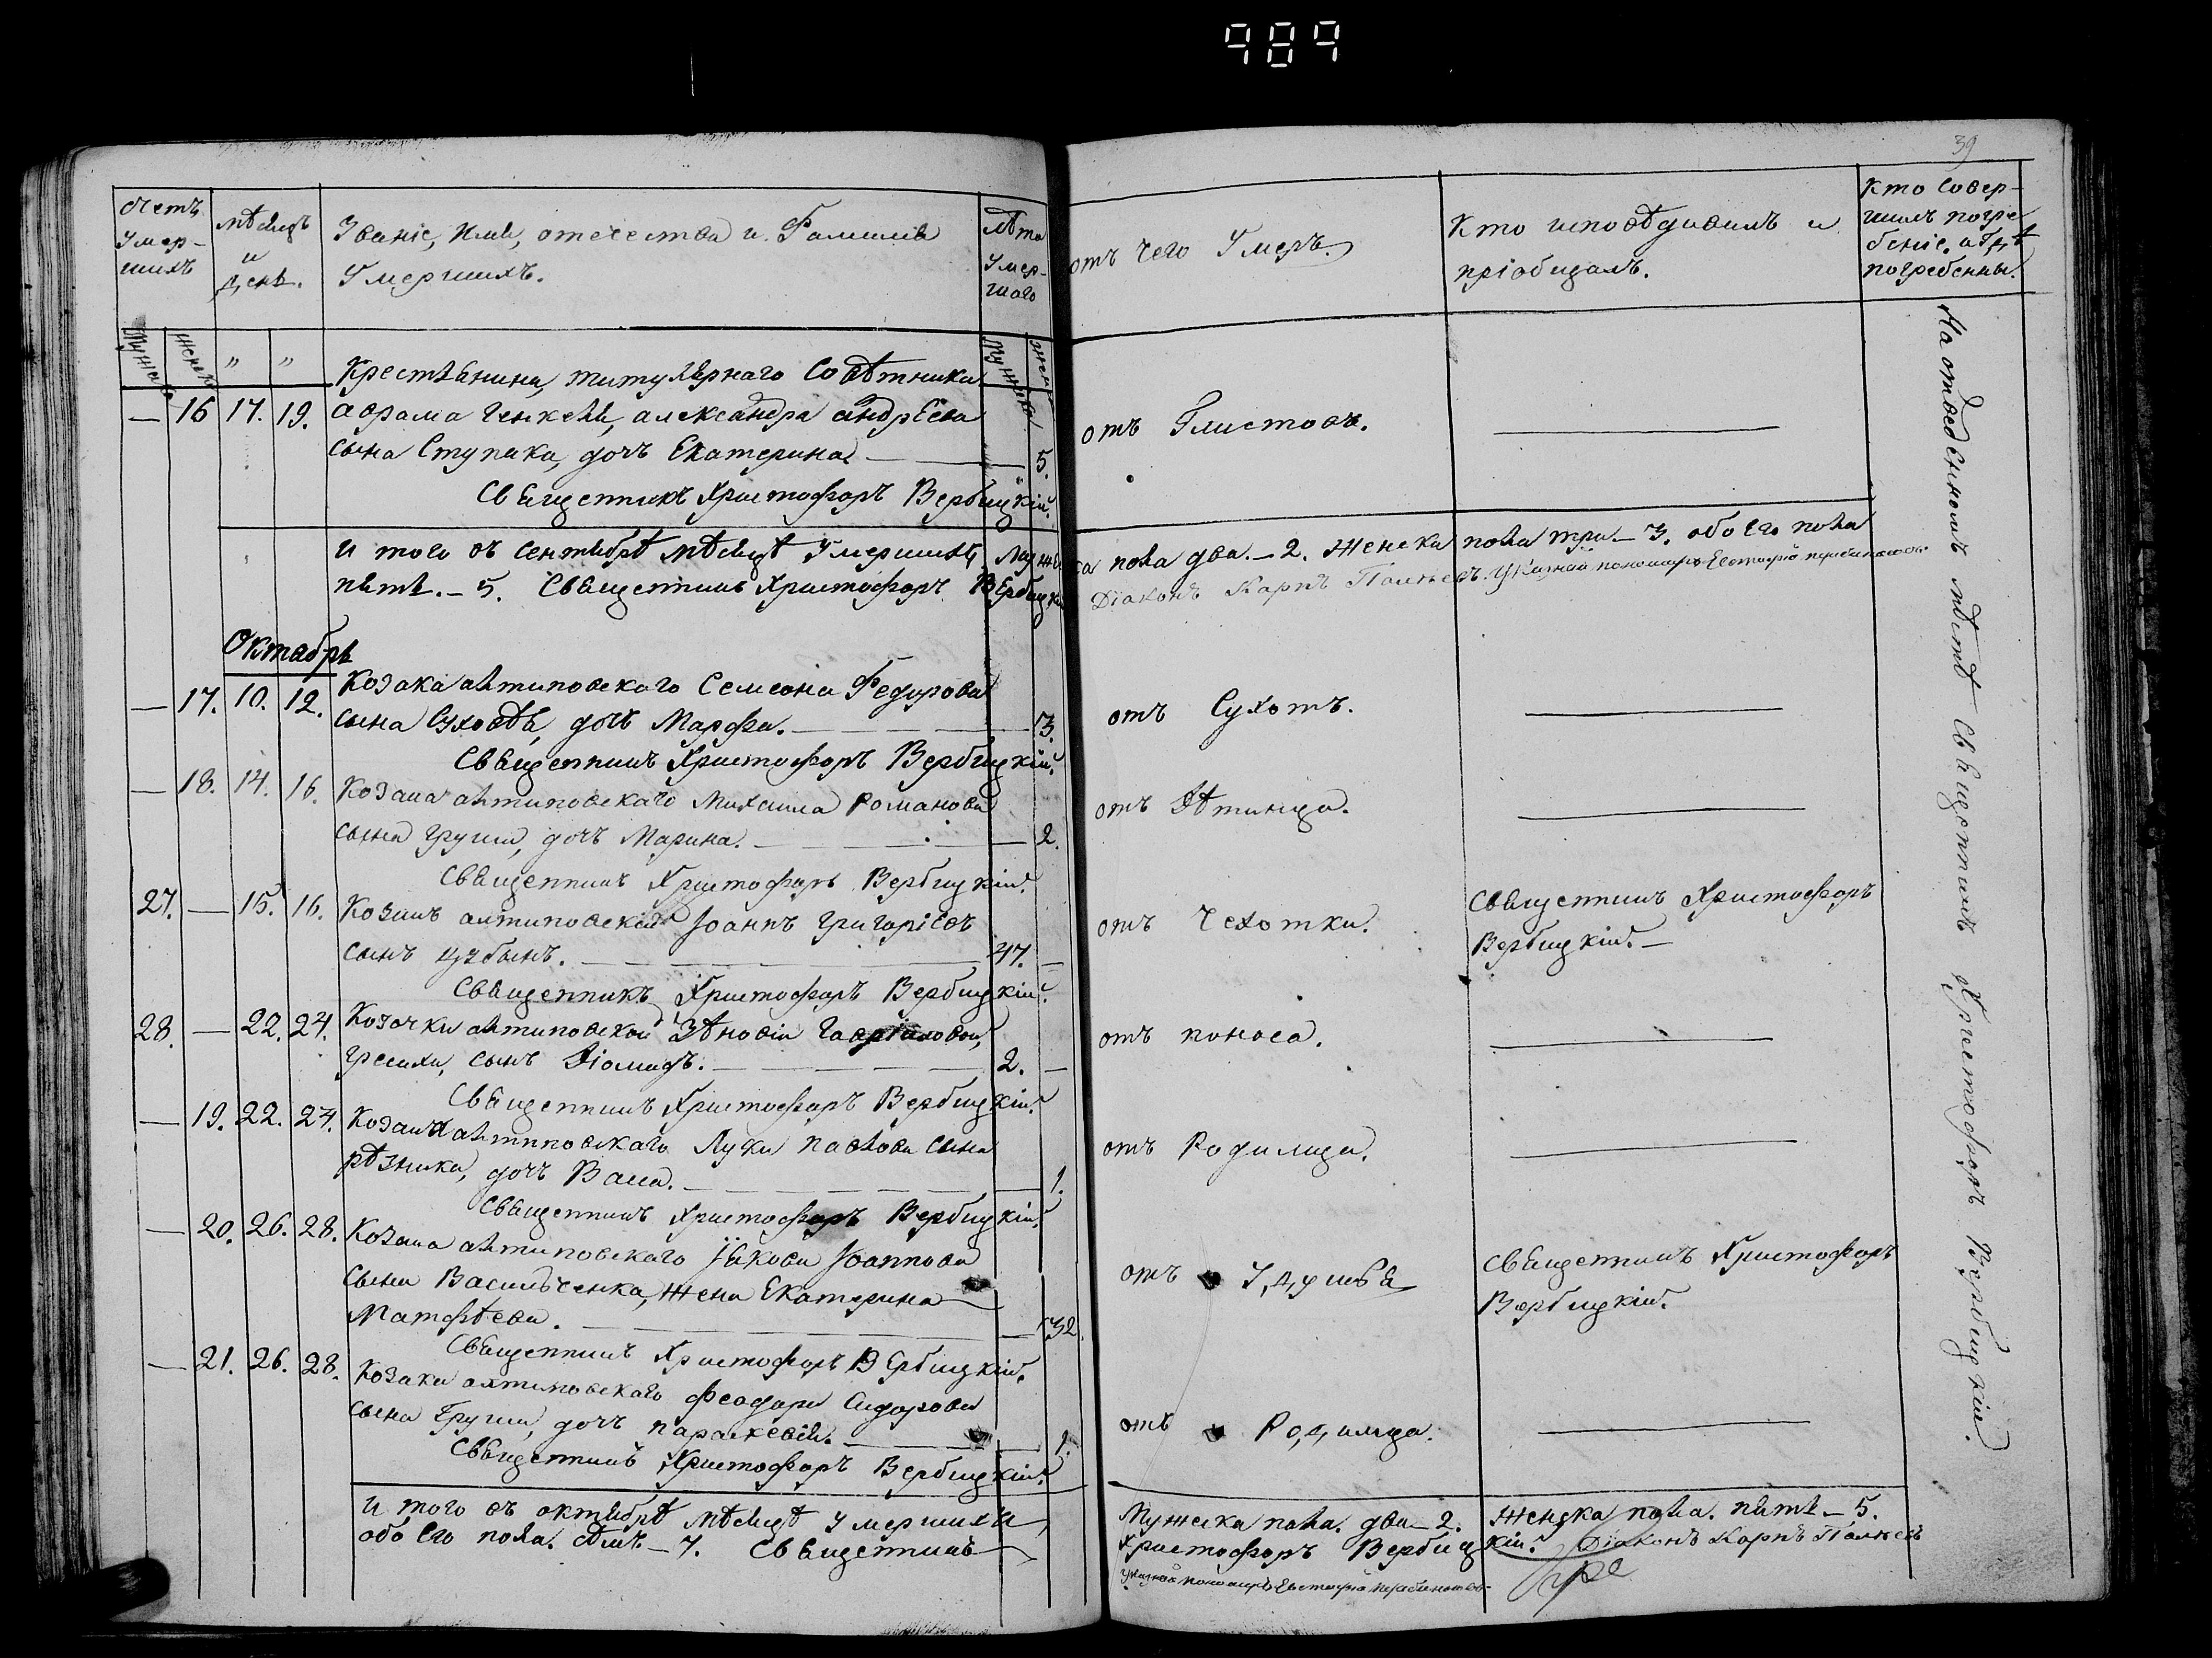 989
39
Счетъ
Умер-
шихъ
Мѣсяцъ
и
День.
Званіе, имя, отечества и Фамилія
Умершихъ.
Лѣта
Умер-
шаго
отъ чего Умеръ.
Кто исповѣдивалъ и
пріобщалъ.
Кто Совер-
шилъ погре
беніе, и Гдѣ
погребенны.
Мужеска
женска
" "
Мужеска
жен
Крестьянина, титулярнаго Совѣтника
— 16 17. 19. Аврама Генкеля, александра андрѣева
сына Ступака, дочъ Екатерина — 5.
отъ Глистовъ. —
Священникъ Христофоръ Вербицкій.
И того въ Сентябрѣ мѣсяцѣ Умершихъ, Мужеска пола два. – 2. Женска пола три – 3. обоего пола
пять. – 5. Священникъ Христофоръ Вербицкій Діаконъ Карпъ Указной пономарь
Октябрь
— 17. 10. 12. Козака антиповскаго Семеона Федорова
сына Суховѣя, дочъ Марфа. — 3.
отъ Сухотъ. —
Священникъ Христофоръ Вербицкій.
— 18. 14. 16. Козака антиповскаго Михаила Романова
сына Груши, дочъ Марина. — 2.
отъ Дѣтинца. —
Священникъ Христофоръ Вербицкій.
27. — 15. 16. Козакъ антиповскій Іоаннъ Григоріевъ
сынъ Цыбынъ. — 47. —
отъ Чехотки.
Священникъ Христофоръ
Вербицкій. —
Священникъ Христофоръ Вербицкій.
28. — 22. 24. Козачки антиповской Зѣновіи Гавріиловой,
Гресихи, сынъ Діомидъ. — 2. —
отъ поноса. —
Священникъ Христофоръ Вербицкій.
— 19. 22. 24. Козака антиповскаго Луки павлова сына
рѣзника, дочъ Васса. — 1.
отъ Родимца. —
Священникъ Христофоръ Вербицкій.
— 20. 26. 28. Козака антиповскаго Іакова Іоаннова
сына Васильченка, жена Екатерина
Матфѣева. — 32.
отъ Удушья
Священникъ Христофоръ
Вербицкій.
Священникъ Христофоръ Вербицкій.
— 21. 26. 28. Козака антиповскаго Феодора Сидорова
сына Груши, дочъ параскевія. — 1.
отъ Родимца. —
Священникъ Христофоръ Вербицкій.
И того въ октябрѣ мѣсяцѣ умершихъ Мужеска пола. два – 2. Женска пола. пять – 5.
обоего пола. сѣмъ – 7. Священникъ Христофоръ Вербицкій. Діаконъ Карпъ
Указной пономарь
На отведенномъ мѣстѣ Священникъ Христофоръ Вербицкій.